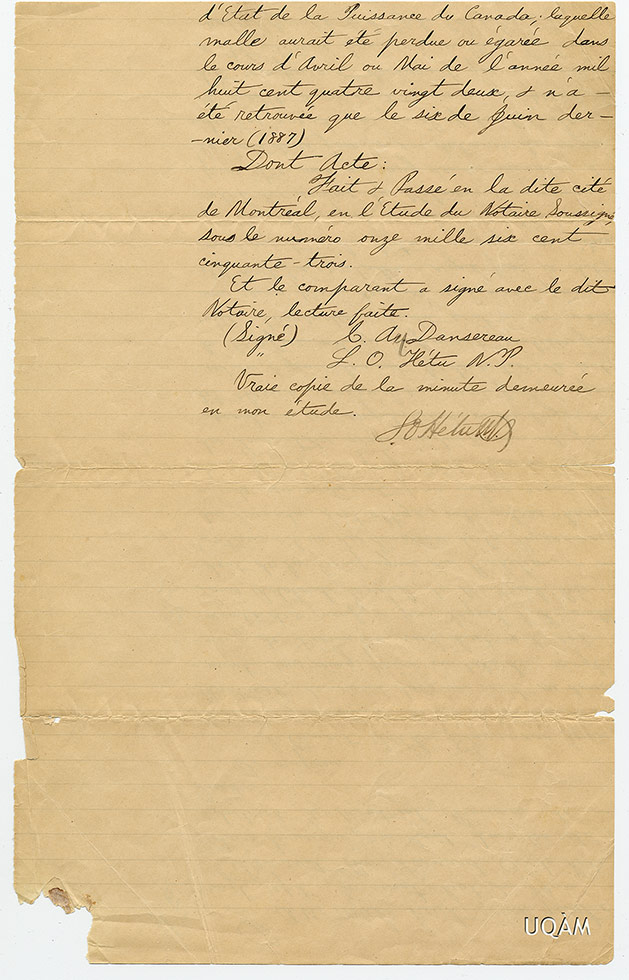 d'Etat de la Puissance du Canada; laquelle
malle aurait été perdue ou égarée dans
le cours d'Avril ou Mai de l'année mil
huit cent quatre vingt deux, & n'a -
été retrouvée que le six de Juin der-
-nier (1887)
Dont Acte:
Fait & Passé en la dite cité
de Montréal, en l'Etude du Notaire Soussigné,
sous le numéro onze mille six cent
cinquante-trois.
Et le comparant a signé avec le dit
Notaire, lecture faite.
(Signé) C. A. Dansereau
" L. O. Hétu N.P.
Vraie copie de la minute demeurée
en mon étude.
L O Hétu N.P.
UQÀM